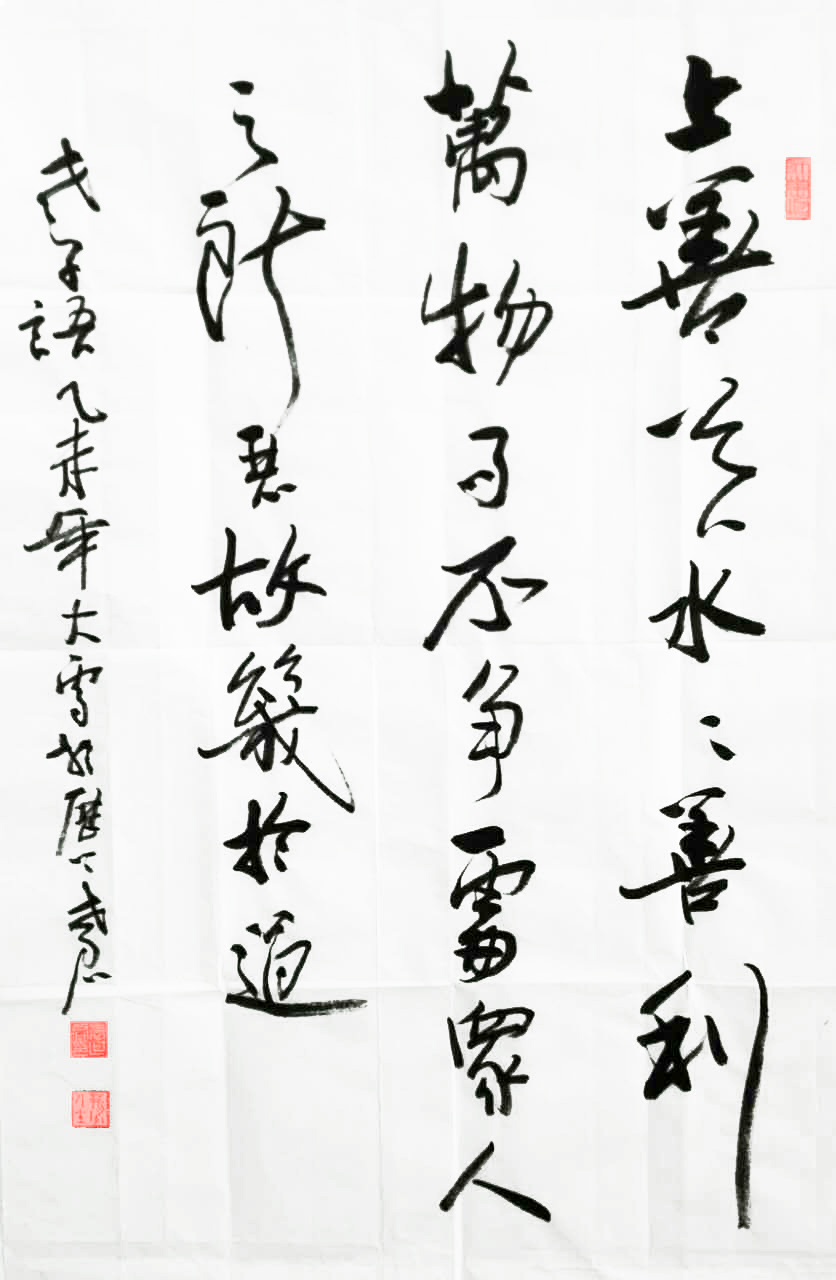 上善若水〻善利
萬物而不争處衆人
之所惡故幾於道
老子語乙未年大雪於歷下